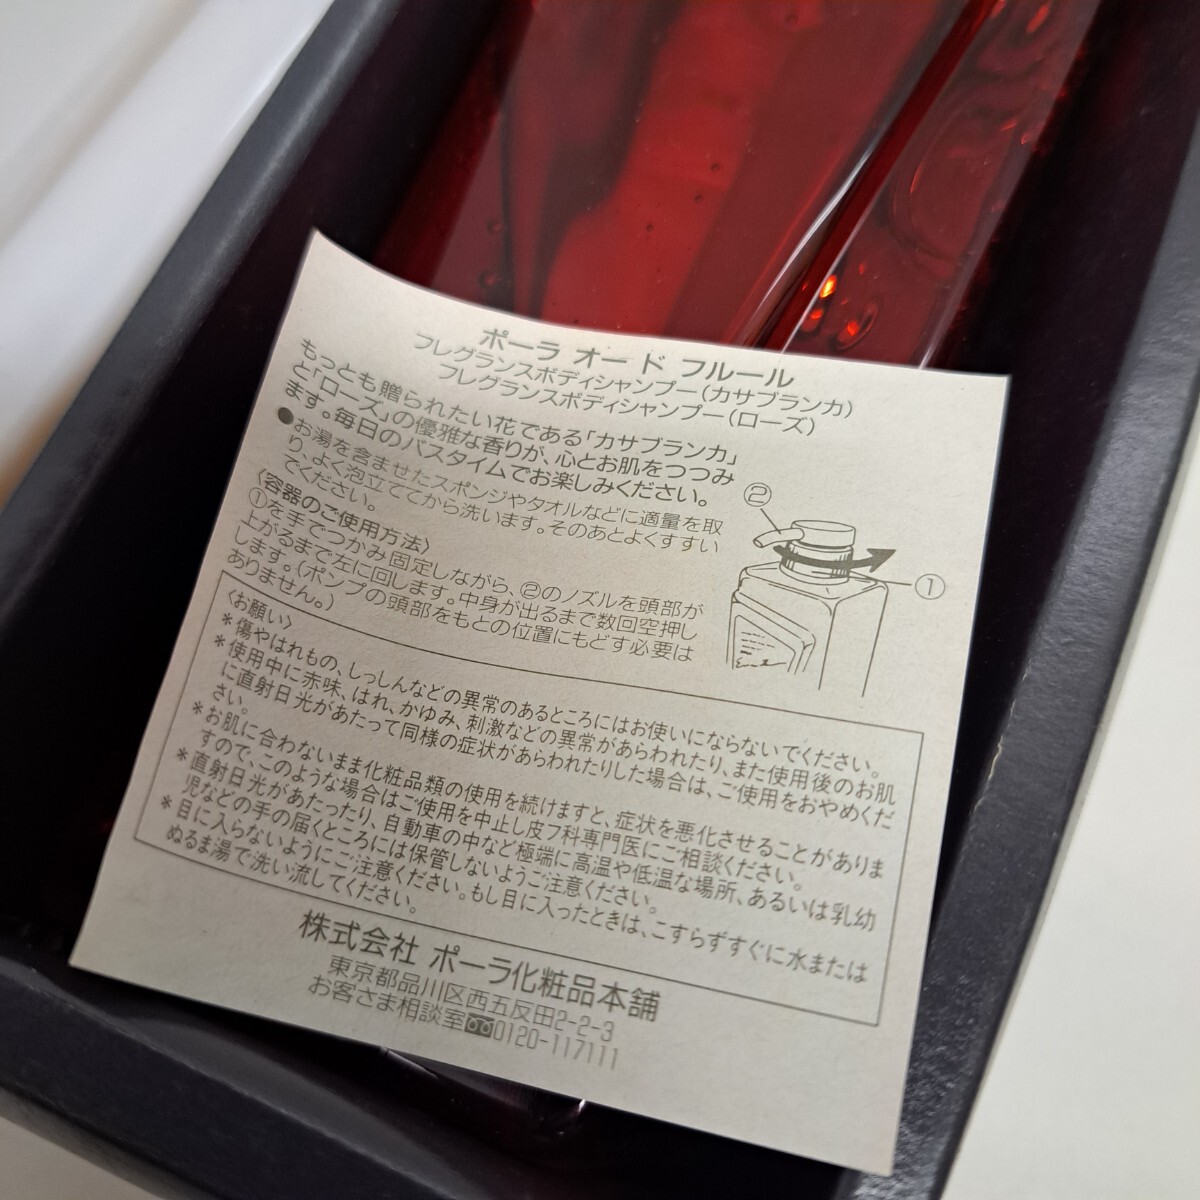 ポーラ オー ド フルール
フレグランスボディシャンプー(カサブランカ)
フレグランスボディシャンプー(ローズ)
もっとも贈られたい花である「カサブランカ」
と「ローズ」の優雅な香りが、心とお肌をつつみ
ます。毎日のバスタイムでお楽しみください。
●お湯を含ませたスポンジやタオルなどに適量を取
り、よく泡立ててから洗います。そのあとよくすすい
でください。
〈容器のご使用方法〉
①を手でつかみ固定しながら、②のノズルを頭部が
上がるまで左に回します。中身が出るまで数回空押し
します。(ポンプの頭部をもとの位置にもどす必要は
ありません。)
②
①
〈お願い〉
＊傷やはれもの、しっしんなどの異常のあるところにはお使いにならないでください。
＊使用中に赤味、はれ、かゆみ、刺激などの異常があらわれたり、また使用後のお肌
に直射日光があたって同様の症状があらわれたりした場合は、ご使用をおやめくだ
さい。
＊お肌に合わないまま化粧品類の使用を続けますと、症状を悪化させることがありま
すので、このような場合はご使用を中止し皮フ科専門医にご相談ください。
＊直射日光があたったり、自動車の中など極端に高温や低温な場所、あるいは乳幼
児などの手の届くところには保管しないようご注意ください。
＊目に入らないようにご注意ください。もし目に入ったときは、こすらずすぐに水または
ぬるま湯で洗い流してください。
株式会社 ポーラ化粧品本舗
東京都品川区西五反田2-2-3
お客さま相談室0120-117111